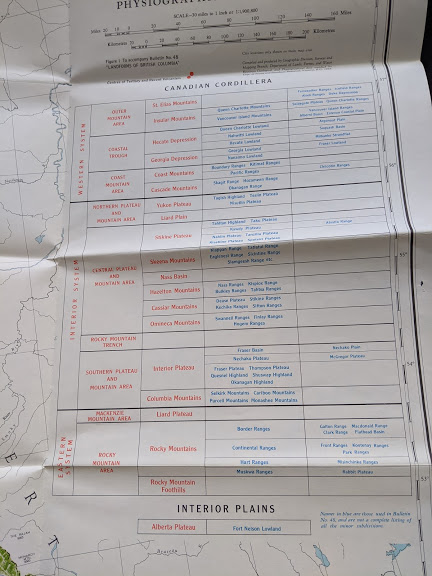 PHYSIOGRAPHIC
SCALE—30 miles to 1 inch or 1:1,900,800
Miles
Miles
Kilometres
Kilometres
Figure 1 To accompany Bulletin No. 48
"LANDFORMS OF BRITISH COLUMBIA"
CANADIAN CORDILLERA
WESTERN SYSTEM
OUTER
MOUNTAIN
AREA
St. Elias Mountains
Insular Mountains
Queen Charlotte Mountains
Vancouver Island Mountains
COASTAL
TROUGH
Hecate Depression
Georgia Depression
Queen Charlotte Lowland
Nahwitti Lowland
Hecate Lowland
Georgia Lowland
Nanaimo Lowland
Argonaut Plain
Suquash Basin
Fraser Lowland
COAST
MOUNTAIN
AREA
Coast Mountains
Cascade Mountains
Boundary Ranges Kitimat Ranges
Pacific Ranges
Chilcotin Ranges
Skagit Range Hozameen Range
Okanagan Range
INTERIOR SYSTEM
NORTHERN PLATEAU
AND
MOUNTAIN AREA
Yukon Plateau
Liard Plain
Tagish Highland Teslin Plateau
CENTRAL PLATEAU
AND
MOUNTAIN AREA
Stikine Plateau
Tahltan Highland Taku Plateau
Kawdy Plateau
Nahlin Plateau Tanzilla Plateau
Klastline Plateau Spatsizi Plateau
Skeena Mountains
Slamgeesh Range etc
Nass Basin
Hazelton Mountains
Nass Ranges Kispiox Range
Bulkley Ranges Tahtsa Ranges
Cassiar Mountains
Dease Plateau Stikine Ranges
Kechika Ranges Sifton Ranges
Omineca Mountains
Swannell Ranges Finlay Ranges
Hogem Ranges
ROCKY MOUNTAIN
TRENCH
SOUTHERN PLATEAU
AND
MOUNTAIN AREA
Interior Plateau
Fraser Basin
Nechako Plain
Nechako Plateau
McGregor Plateau
Fraser Plateau Thompson Plateau
Quesnel Highland Shuswap Highland
Okanagan Highland
Columbia Mountains
Selkirk Mountains Cariboo Mountains
Purcell Mountains Monashee Mountains
EASTERN
SYSTEM
MACKENZIE
MOUNTAIN AREA
Liard Plateau
ROCKY
MOUNTAIN
AREA
Rocky Mountains
Border Ranges
Galton Range Macdonald Range
Clark Range Flathead Basin
Continental Ranges
Front Ranges Kootenay Ranges
Park Ranges
Hart Ranges
Misinchinka Ranges
Muskwa Ranges
Rabbit Plateau
Rocky Mountain
Foothills
INTERIOR PLAINS
Alberta Plateau
Fort Nelson Lowland
Names in blue are those used in Bulletin
No. 48, and are not a complete listing of
all the minor subdivisions.
55°
54°
53°
E
R
T